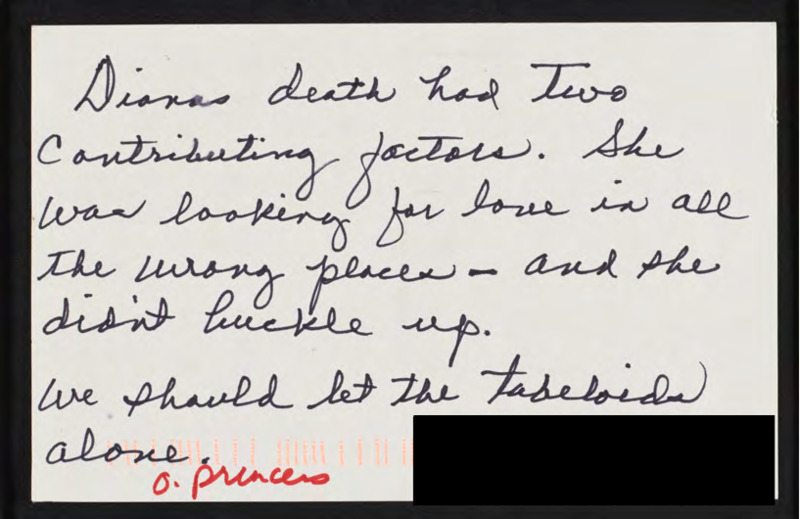 Dianas death had Two
Contributing factors. She
was looking for love in all
the wrong places – and she
didn't buckle up.
We should let the tabeloids
alone.
o. princess